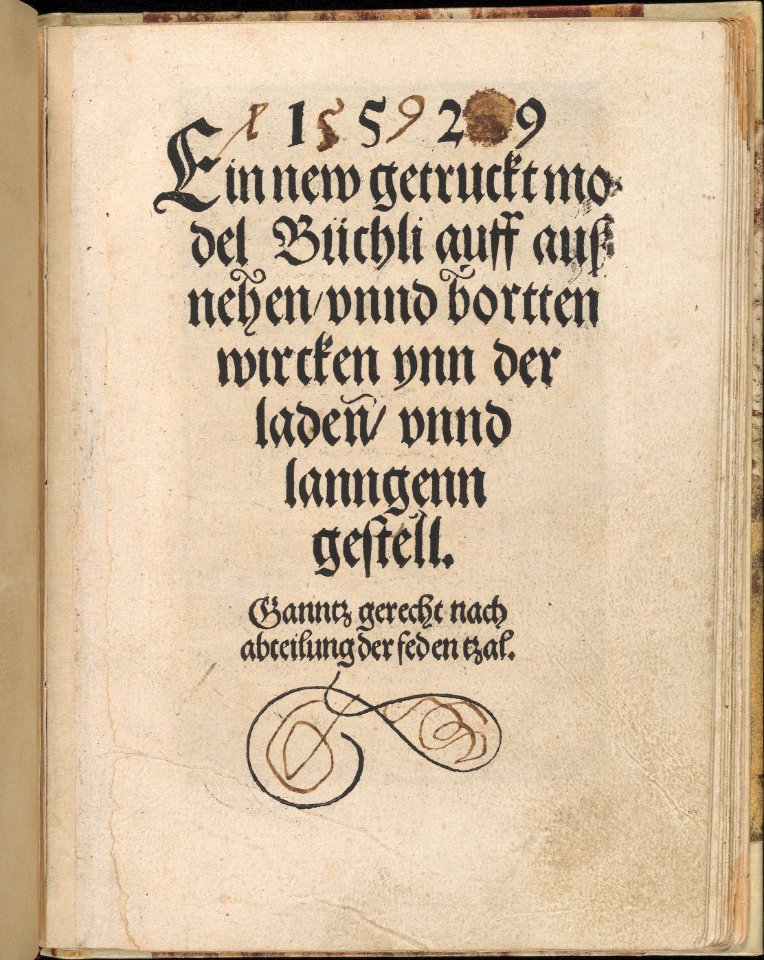 1 5 5 9 2 9
Ein new getruckt mo-
del Büchli auff auß
nehen/vnnd bortten
wircken ynn der
laden/ vnnd
lanngenn
gestell.
Ganntz gerecht nach
abteilung der feden tzal.